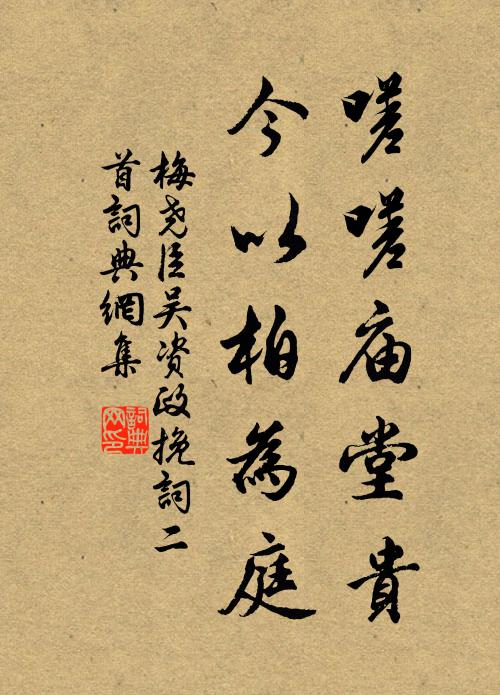 嗟嗟庙堂貴
今以柏為庭
梅尧臣吴资政挽詞二
首詞典網集
詞典
网印